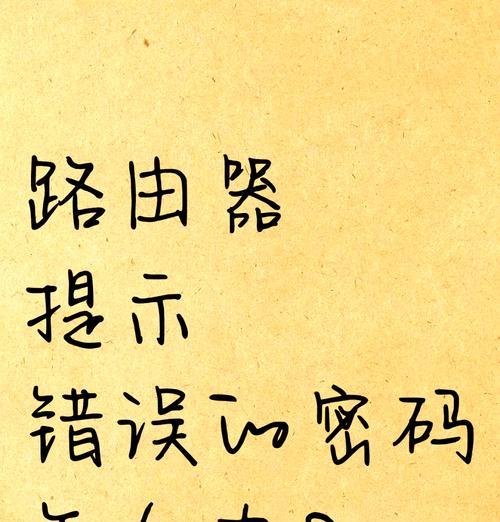 路由器
提示
错误的密码